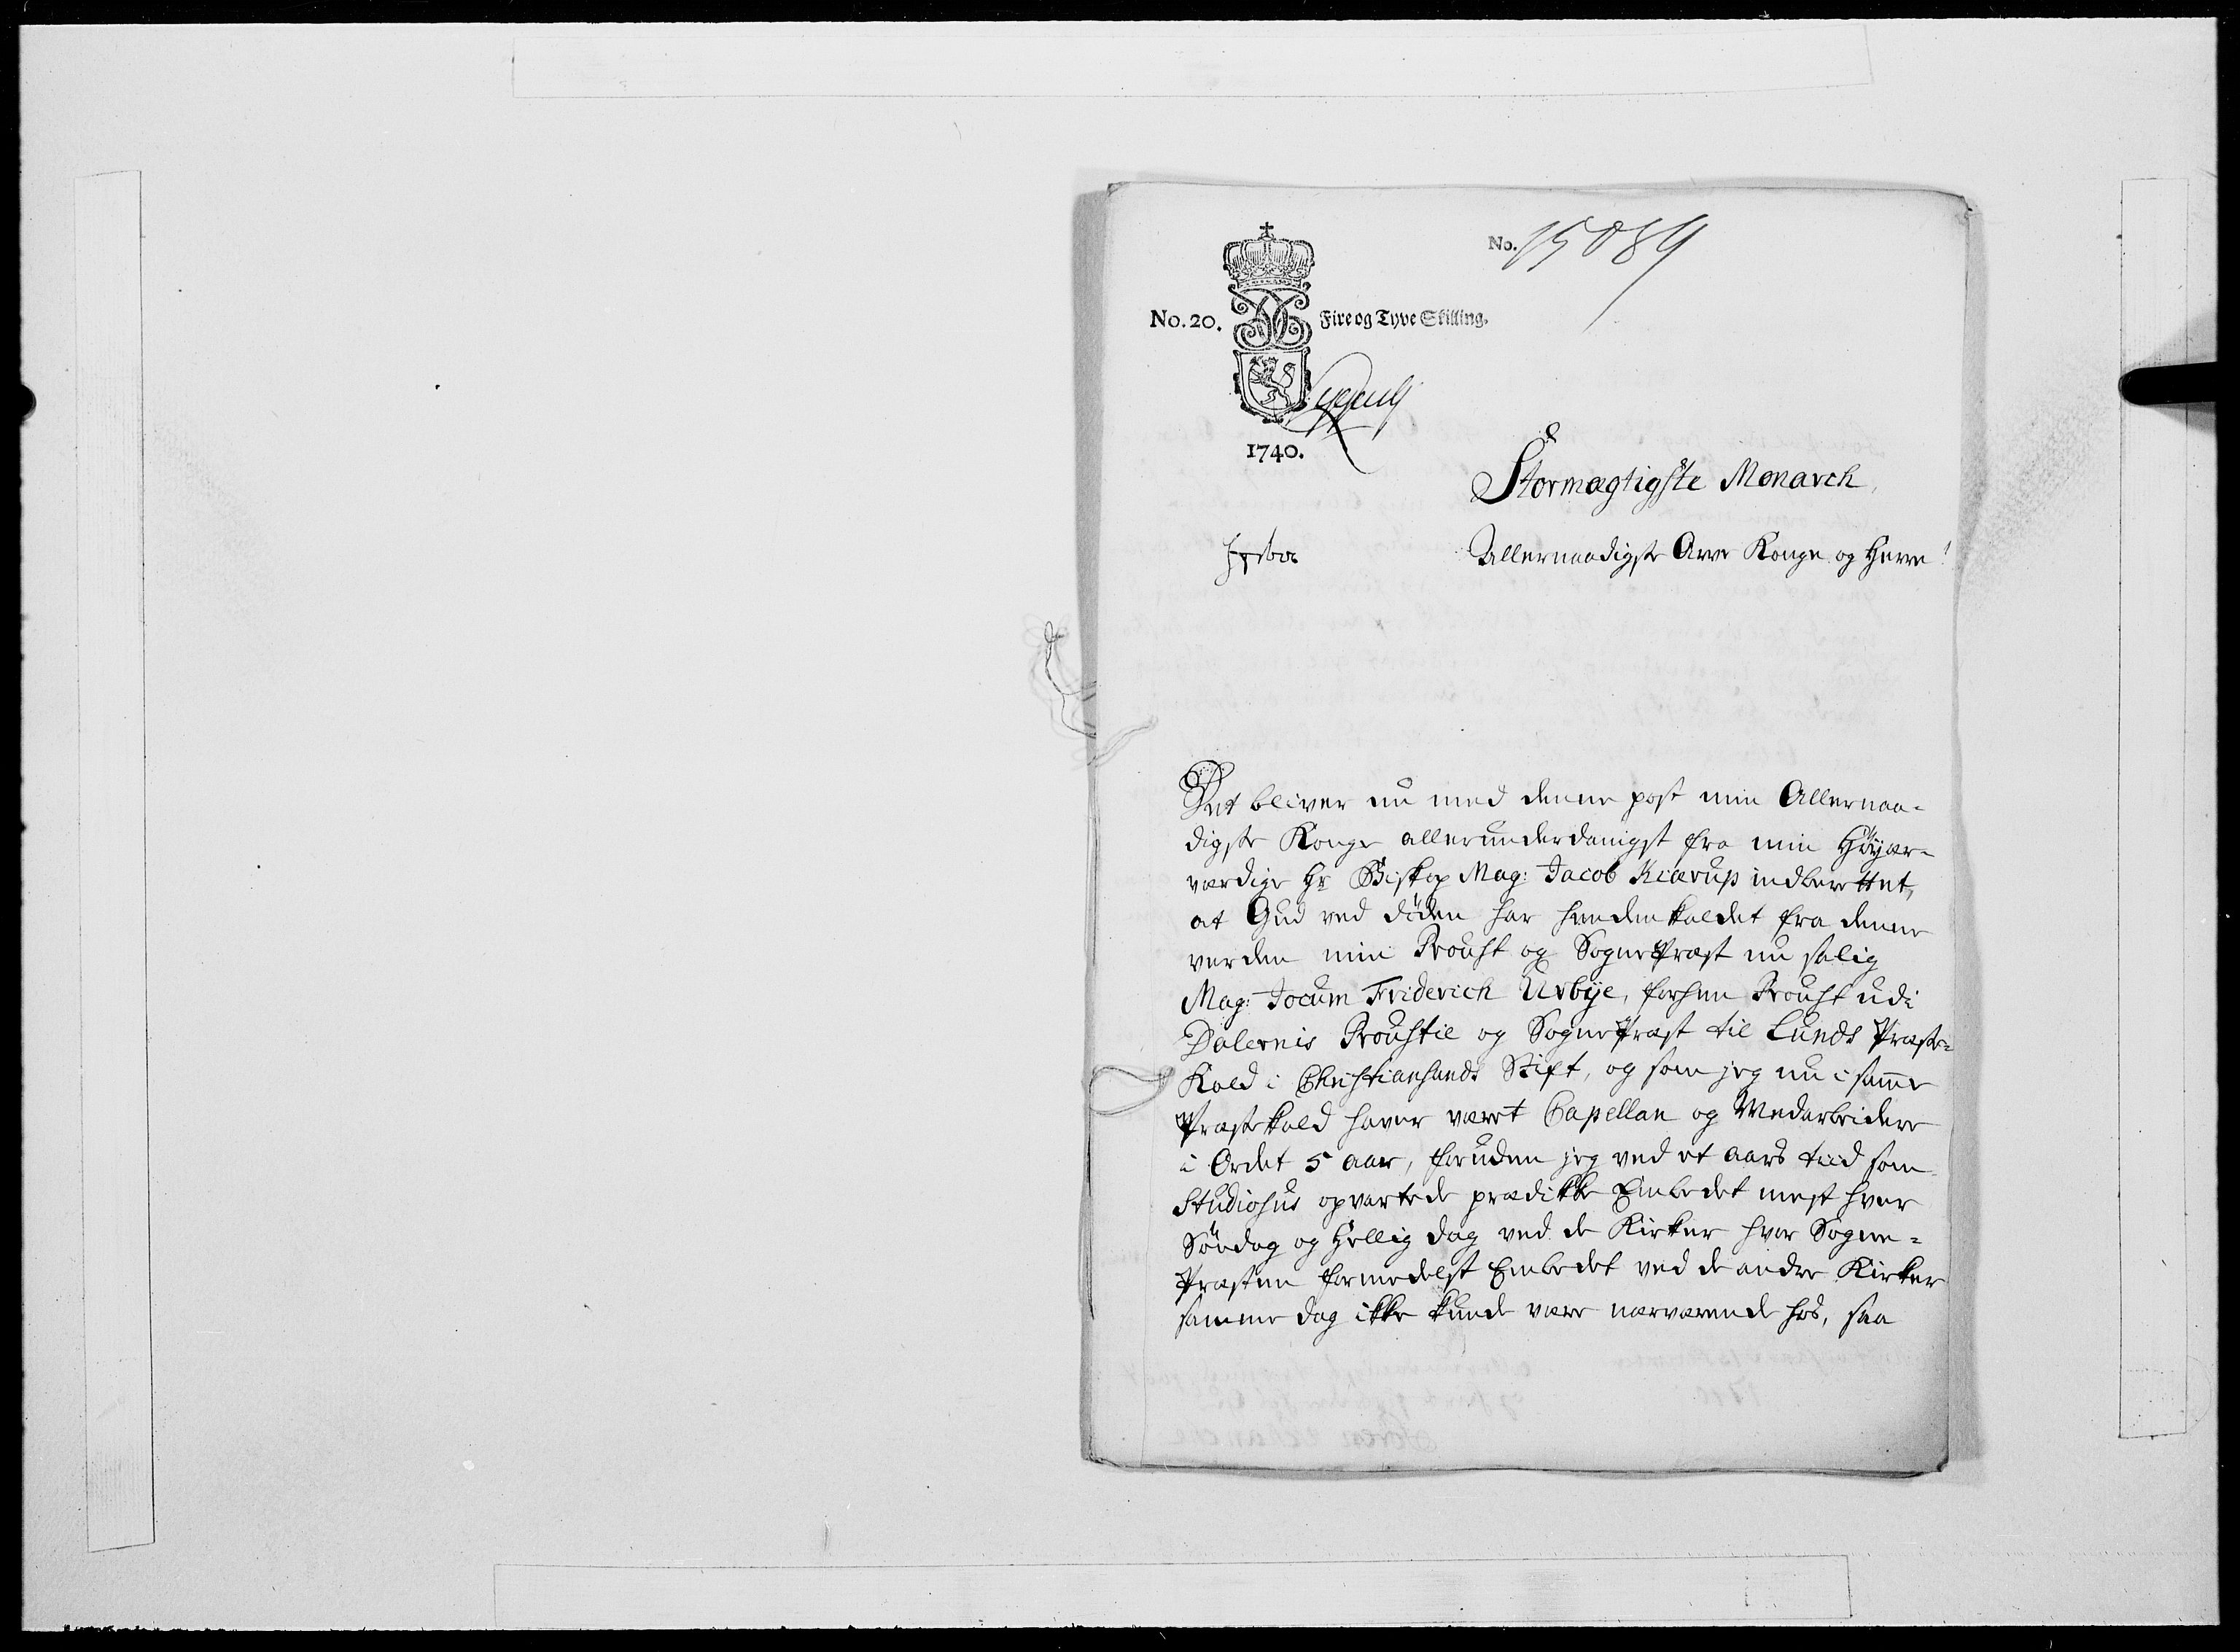 No. 15089
No. 20. Fire og Tyve Skilling.
1740.
Stormægtigste Monarch,
Allernaadigste Arve Konge og Herre!
Det bliver nu med denne post min Allernaa-
digste Konge allerunderdanigst fra min Höyær-
værdige Hr Biskop Mag: Jacob Kiærup indberettet,
at Gud ved döden har henden kaldet fra denne
verden min Proust og SognePræst nu salig
Mag: Jocum Friderich Urbÿe, forhen Proust udi
Dalernis Proustie og SognePræst til Lunds Præste-
Kald i Christiansands Stift, og som jeg nu i samme
Præstekald haver været Capellan og Medarbeidere
i Ordet 5 aar, foruden jeg ved et aars tiid som
Studiosus opvartede prædikke Embedet mest hver
Söndag og Hellig dag ved de Kirker hvor Sogne-
Præsten formedelst Embedet ved de andre Kirker
samme dag ikke kunde være nærværende hos, saa